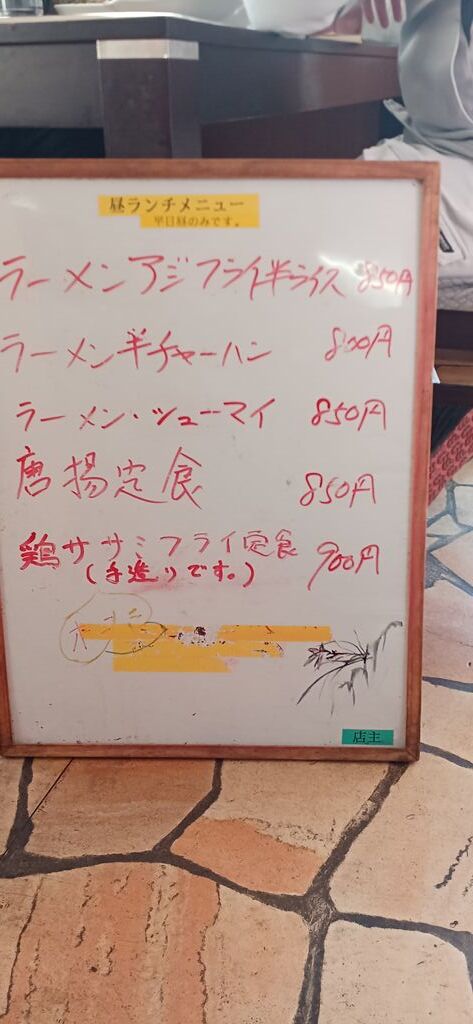 昼ランチメニュー
平日昼のみです。
ラーメンアジフライ半ライス 850円
ラーメン半チャーハン 800円
ラーメン・シューマイ 850円
唐揚定食 850円
鶏ササミフライ定食 900円
(手造りです。)
店主